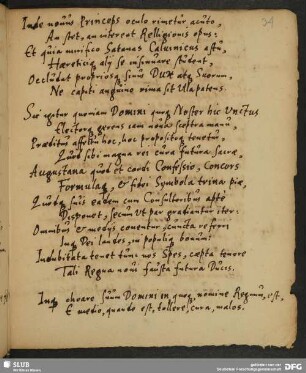 Inde novus Princeps oculo rimetur acuto,
An stet, an intereat Relligionis opus:
Et quia mirifico Satanas Calvinicus astu,
Haereticiq; aly se insinuare student,
Occludat propriosq; sinus Dux atq; Suorum,
Ne capiti anguino rima sit Ulla patens.
Sic igitur quoniam Domini quoq; Noster hic Unctus
Elector, gerens iam nova sceptra manu,
Praeditus affectu hoc, hoc propositoq; tenetur,
Quod sibi magna rei cura futura sacrae,
Augustana quod et cordi Confessio, Concors
Formulaq;, & fidei Symbola trina piae,
Quodq; suis eadem cum Consultoribus apte
Disponet, secum Ut pergradiantur iter:
Omnibus & medys conentur, cuncta referri
Inq; Dei laudes, in populiq; bonum:
Indubitata tenet tunc nos Spes, coepta tenere
Tali Regna novi fausta futura Ducis.
Inq; suum Domini in quoq; nomine Regnum, est,
E medio, quando est, tollere, cura, malos.
SLUB
DFG